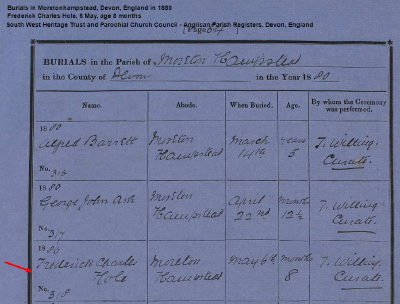 Burials in Moretonhampstead, Devon, England in 1880
Frederick Charles Hole, 6 May, age 8 months
South West Heritage Trust and Parochial Church Council - Anglican Parish Registers, Devon, England
[Page 64]
BURIALS in the Parish of Moreton Hampstead
in the County of Devon in the Year 1880
Name. Abode. When Buried. Age. By whom the Ceremony was performed.
1880
Alfred Barrett Moreton Hampstead March 14th years 5 T. Willing. Curate.
No. 316
1880
George John Ash Moreton Hampstead April 22nd months 12½ T. Willing. Curate.
No. 317
1880
Frederick Charles Hole Moreton Hampstead May 6th months 8 T. Willing Curate.
No. 318